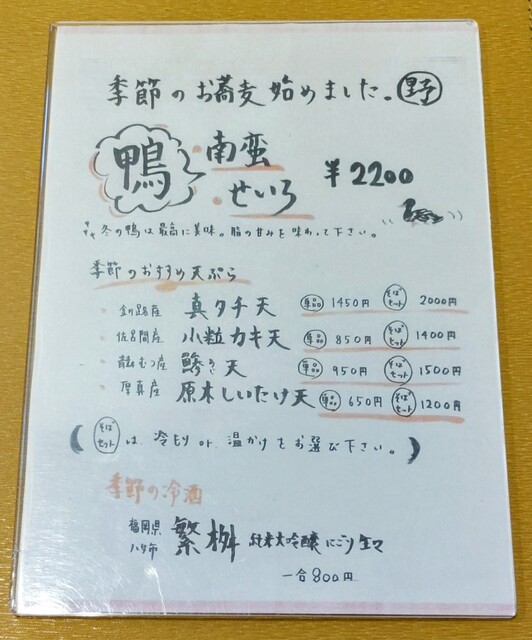 季節のお蕎麦始めました。野
鴨
・南蛮
・せいろ
¥2200
冬の鴨は最高に美味。脂の甘みを味わって下さい。
季節のおすすめ天ぷら
・釧路産 真タチ天 単品 1450円 そばセット 2000円
・佐呂間産 小粒カキ天 単品 850円 そばセット 1400円
・青森むつ産 鰺き天 単品 950円 そばセット 1500円
・厚真産 原木しいたけ天 単品 650円 そばセット 1200円
(そばセットは、冷もり or 温かけをお選び下さい。)
季野の冷酒
福岡県
八女市
繁桝 純米大吟醸 にごり生々
一合 800円